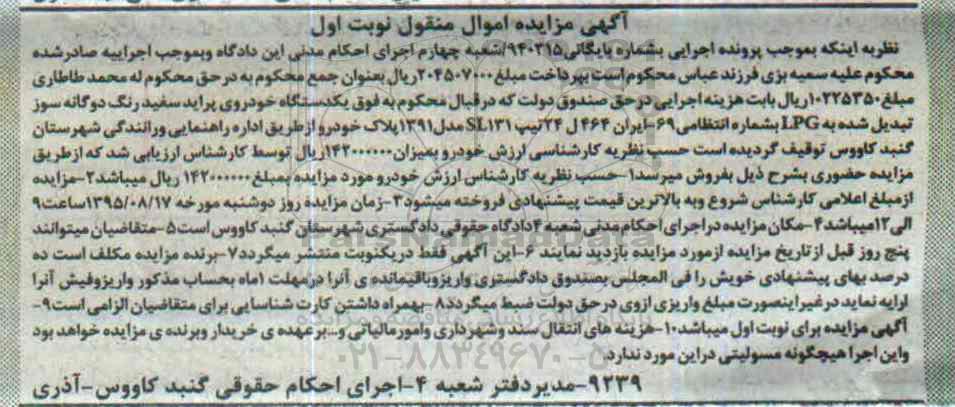 آگهی مزایده اموال منقول نوبت اول
نظربه اینکه بموجب پرونده اجرایی بشماره بایگانی۹۴۰۳۱۵/شعبه چهارم اجرای احکام مدنی این دادگاه وبموجب اجراییه صادرشده
محکوم علیه سمیه بزی فرزند عباس محکوم است بپرداخت مبلغ ۲۰۴۵۰۷۰۰۰ریال بعنوان جمع محکوم به درحق محکوم له محمد طاطاری
مبلغ۱۰۲۲۵۳۵۰ریال بابت هزینه اجرایی درحق صندوق دولت که درقبال محکوم به فوق یکدستگاه خودروی پراید سفید رنگ دوگانه سوز
تبدیل شده به LPG بشماره انتظامی۶۹-ایران ۴۶۴ ل ۲۴تیپ SL۱۳۱مدل۱۳۹۱پلاک خودرو ازطریق اداره راهنمایی ورانندگی شهرستان
گنبد کاووس توقیف گردیده است حسب نظریه کارشناسی ارزش خودرو بمیزان۱۴۲۰۰۰۰۰۰ریال توسط کارشناس ارزیابی شد که ازطریق
مزایده حضوری بشرح ذیل بفروش میرسد۱-حسب نظریه کارشناس ارزش خودرو مورد مزایده بمبلغ۱۴۲۰۰۰۰۰۰ ریال میباشد۲-مزایده
ازمبلغ اعلامی کارشناس شروع وبه بالاترین قیمت پیشنهادی فروخته میشود۳-زمان مزایده روز دوشنبه مورخه ۱۳۹۵/۰۸/۱۷ساعت۹
الی۱۲میباشد۴-مکان مزایده دراجرای احکام مدنی شعبه ۴دادگاه حقوقی دادگستری شهرستان گنبد کاووس است۵-متقاضیان میتوانند
پنج روز قبل ازتاریخ مزایده ازمورد مزایده بازدید نمایند ۶-این آگهی فقط دریکنوبت منتشر میگردد۷-برنده مزایده مکلف است ده
درصد بهای پیشنهادی خویش را فی المجلس بصندوق دادگستری واریزوباقیمانده ی آنرا درمهلت ۱ماه بحساب مذکور واریزوفیش آنرا
ارایه نماید درغیراینصورت مبلغ واریزی ازوی درحق دولت ضبط میگردد۸-بهمراه داشتن کارت شناسایی برای متقاضیان الزامی است۹-
آگهی مزایده برای نوبت اول میباشد۱۰-هزینه های انتقال سند وشهرداری وامورمالیاتی و...برعهده ی خریدار وبرنده ی مزایده خواهد بود
واین اجرا هیچگونه مسولیتی دراین مورد ندارد.
۰۲۱-۸۸۳۴۹۶۷۰-۵
۹۲۳۹-مدیردفتر شعبه ۴-اجرای احکام حقوقی گنبد کاووس-آذری